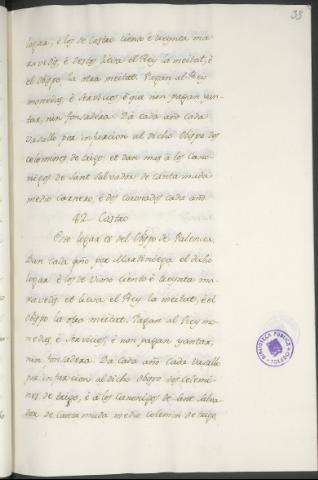 38
logar, è los de Castro ciento è treynta ma-
ravedis, è destos lieva el Rey la meitat, è
el Obispo la otra meitat. Pagan al Rey
monedas, è servicios è que non pagan yan-
tar, nin fonsadera. Dà cada año cada
Vasallo por infurcion al dicho Obispo dos
celemines de trigo. et dan mas à los Cano-
nigos de Sant Salvador de Canta muda
medio carnero, è dos coronados cada año.
42. Castro
Este logar es del Obispo de Palencia.
Dan cada año por Martiniega el dicho
logar è los de Viono ciento è treynta ma-
ravedis et lieva el Rey la meitat, è el
Obispo la otra meitat. Pagan al Rey mo-
nedas, è servicios, è non pagan yantar,
nin fonsadera. Da cada año cada Vasallo
por infurcion al dicho Obispo dos celemi-
nes de trigo, è à los Canonigos de Sant Salva-
dor de Canta muda medio celemin de trigo
BIBLIOTECA PUBLICA
TOLEDO